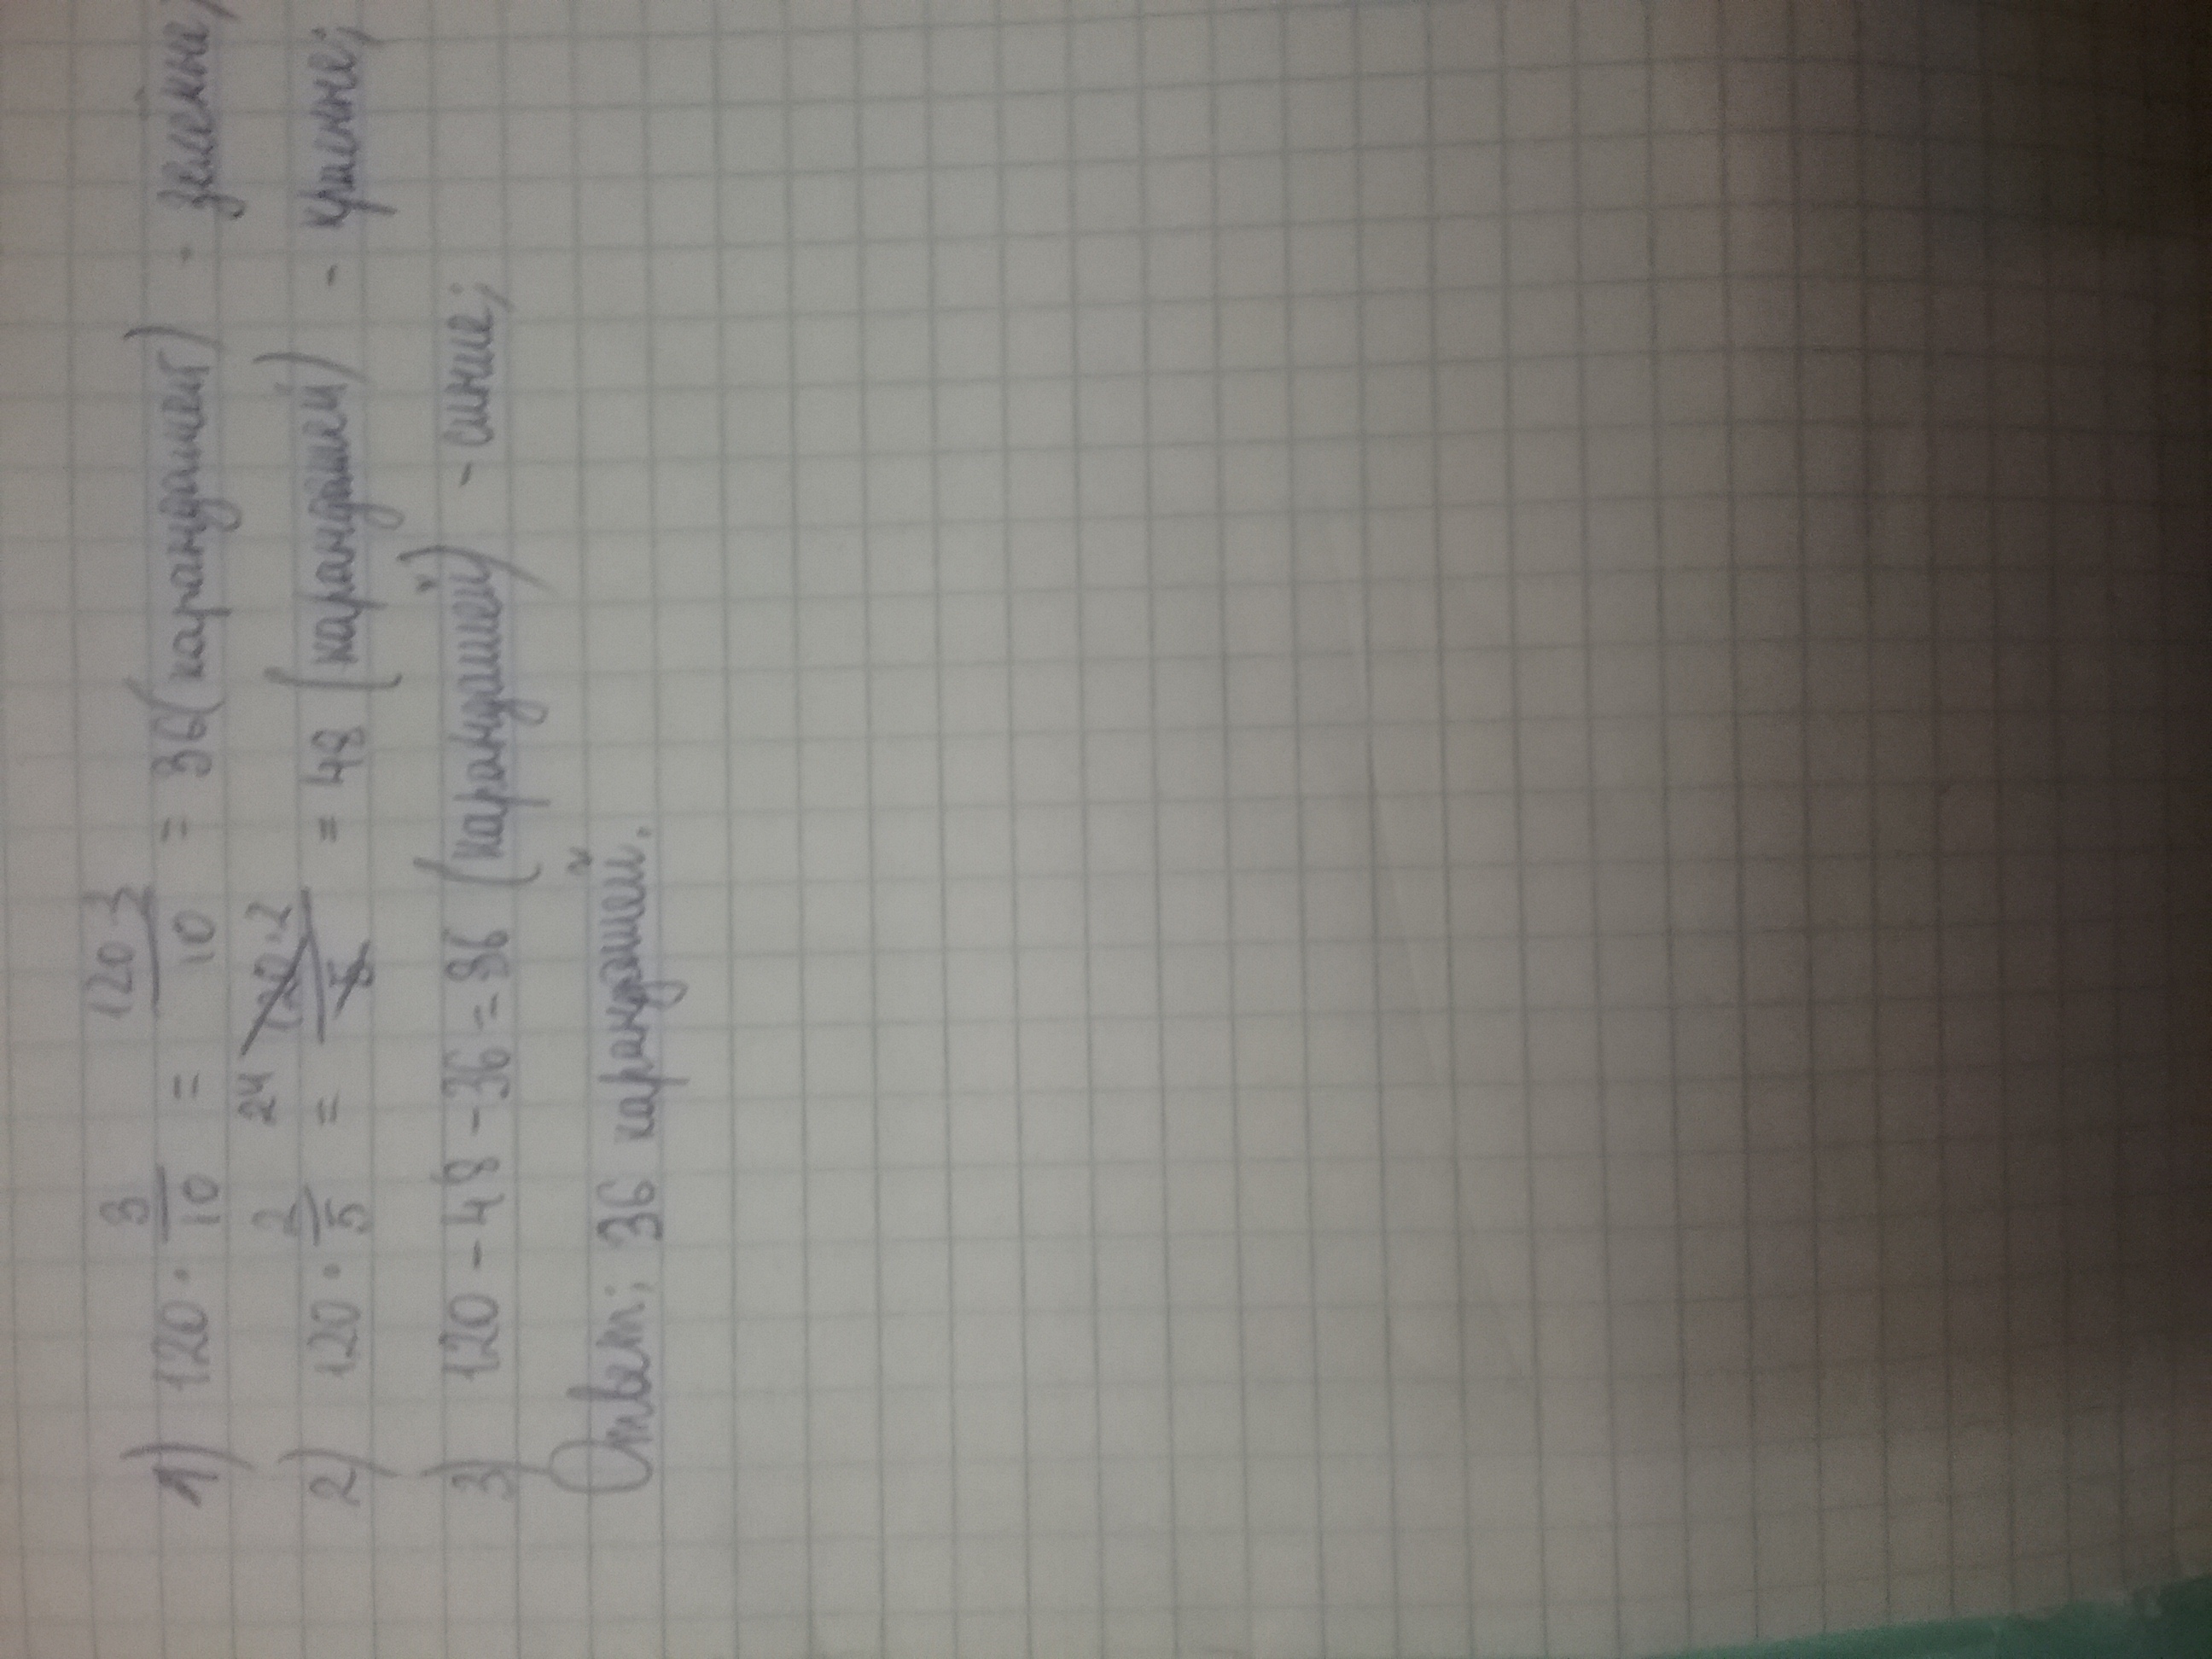 1) 120 · 3/10 = 120·3/10 = 36 (карандашей) - зелёные;
2) 120 · 2/5 = 24 120·2/5 = 48 (карандашей) - красные;
3) 120 - 48 - 36 = 36 (карандашей) - синие;
Ответ: 36 карандашей.